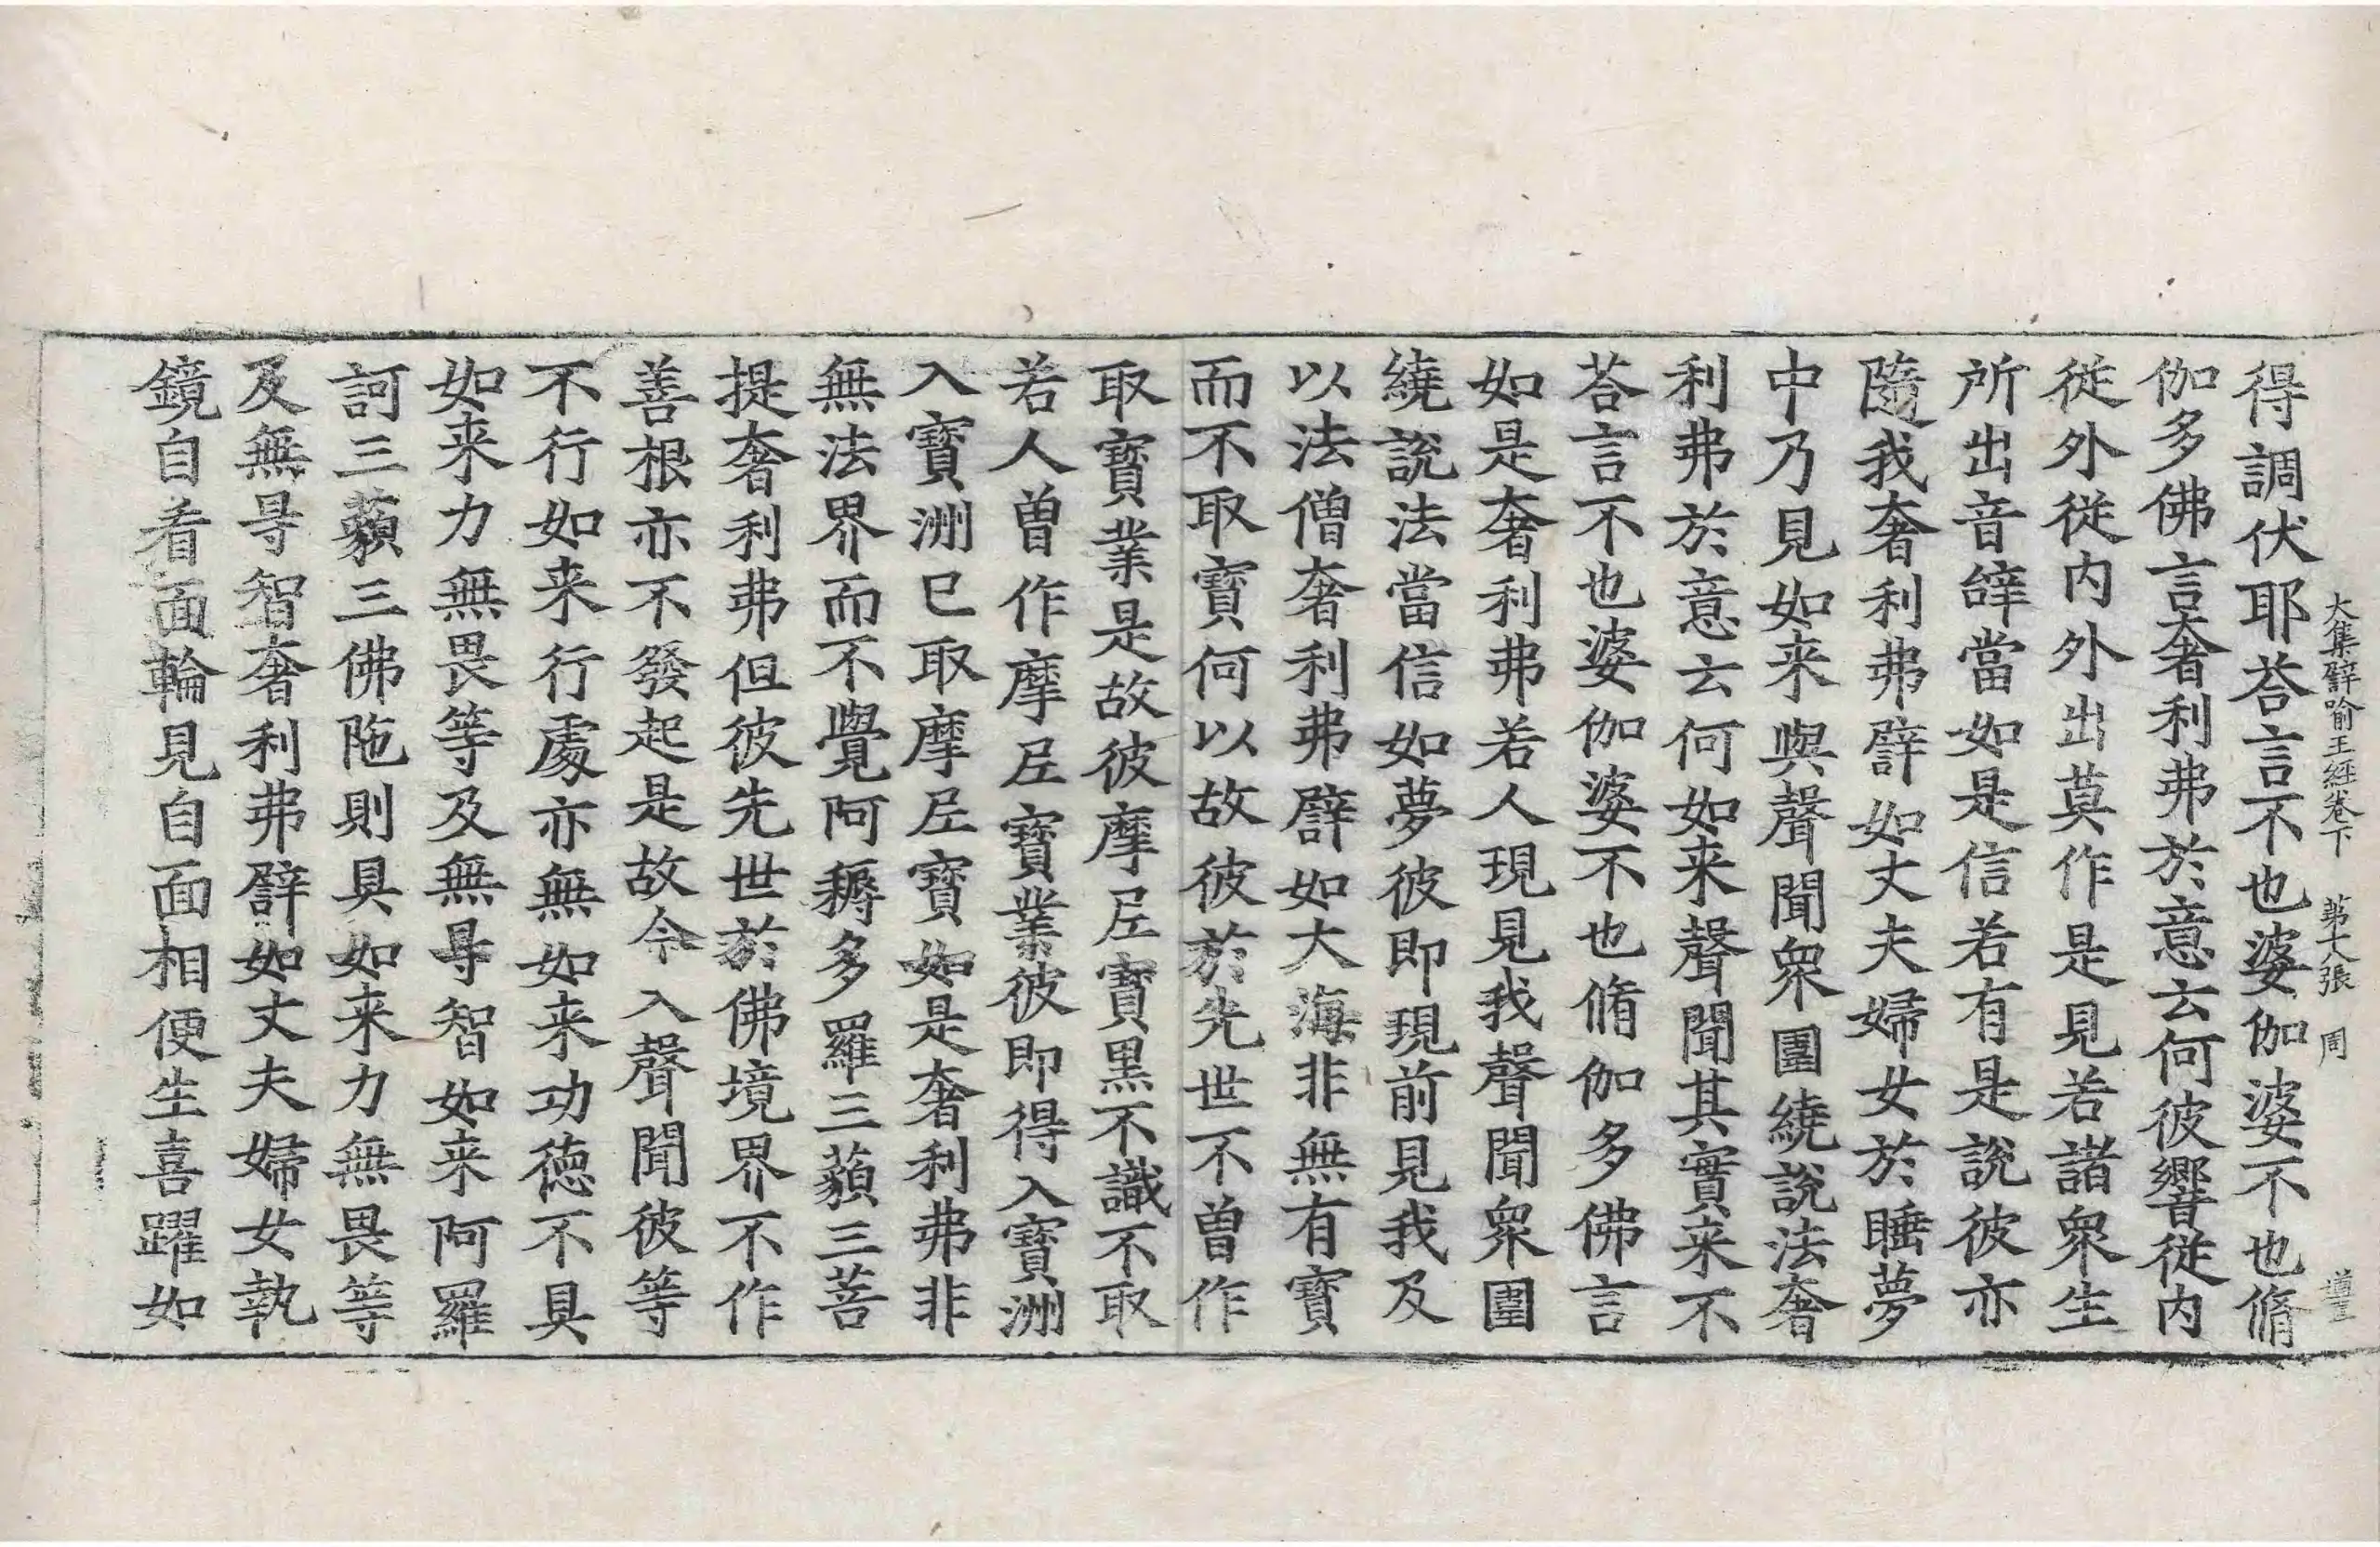 大集譬喻王經卷下 第十八張 周
得調伏耶荅言不也婆伽婆不也脩
伽多佛言奢利弗於意云何彼響從内
從外從内外出莫作是見若諸衆生
所出音辝當如是信若有是說彼亦
隨我奢利弗譬如丈夫婦女於睡夢
中乃見如来與聲聞衆圍繞說法奢
利弗於意云何如来聲聞其實来不
荅言不也婆伽婆不也脩伽多佛言
如是奢利弗若人現見我聲聞衆圍
繞說法當信如夢彼即現前見我及
以法僧奢利弗譬如大海非無有寶
而不取寶何以故彼於先世不曽作
取寶業是故彼摩𡰱寶黒不識不取
若人曽作摩𡰱寶業彼即得入寶洲
入寶洲巳取摩𡰱寶如是奢利弗非
無法界而不覺阿耨多羅三藐三菩
提奢利弗但彼先世於佛境界不作
善根亦不發起是故令入聲聞彼等
不行如来行處亦無如来功徳不具
如来力無畏等及無㝵智如来阿羅
訶三藐三佛陁則具如来力無畏等
及無㝵智奢利弗譬如丈夫婦女執
鏡自看面輪見自面相便生喜躍如